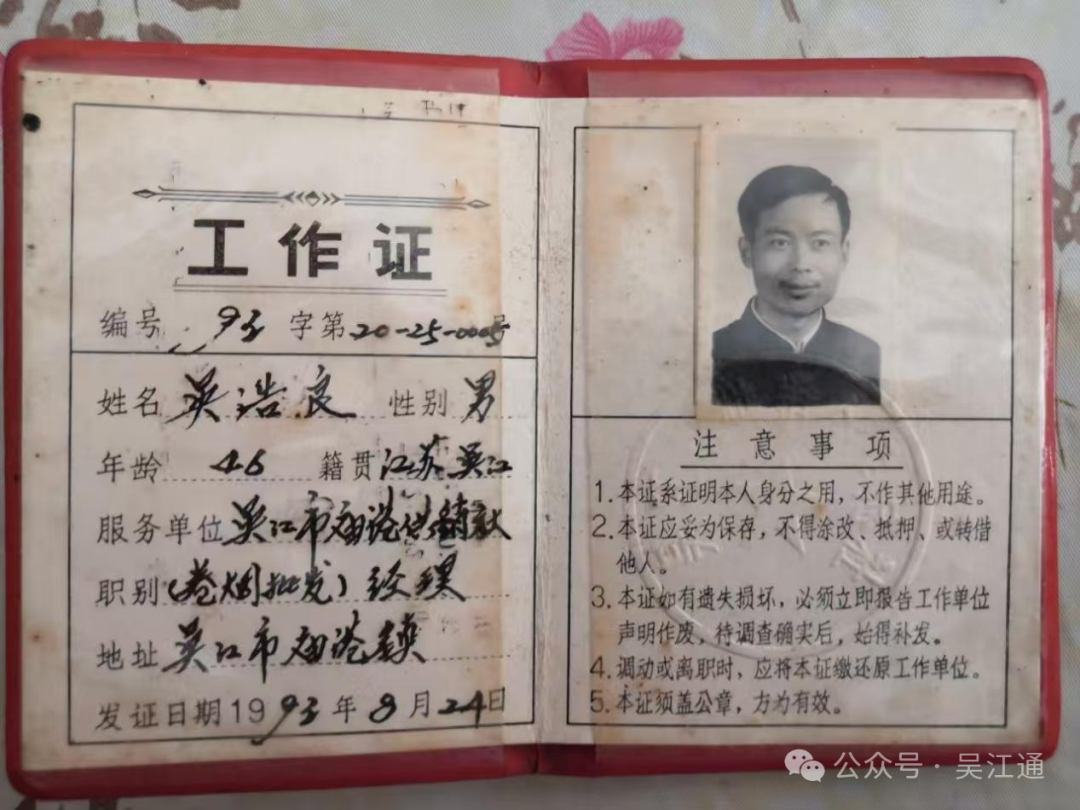 工作证
编号 93 字第20-25-0005号
姓名 吴浩良 性别 男
年龄 46 籍贯 江苏吴江
服务单位 吴江市庙港供销社
职别 (卷烟批发) 经理
地址 吴江市庙港镇
发证日期 1993年8月24日
注意事项
1. 本证系证明本人身分之用，不作其他用途。
2. 本证应妥为保存，不得涂改、抵押、或转借
他人。
3. 本证如有遗失损坏，必须立即报告工作单位
声明作废，待调查确实后，始得补发。
4. 调动或离职时，应将本证缴还原工作单位。
5. 本证须盖公章，方为有效。
公众号·吴江通